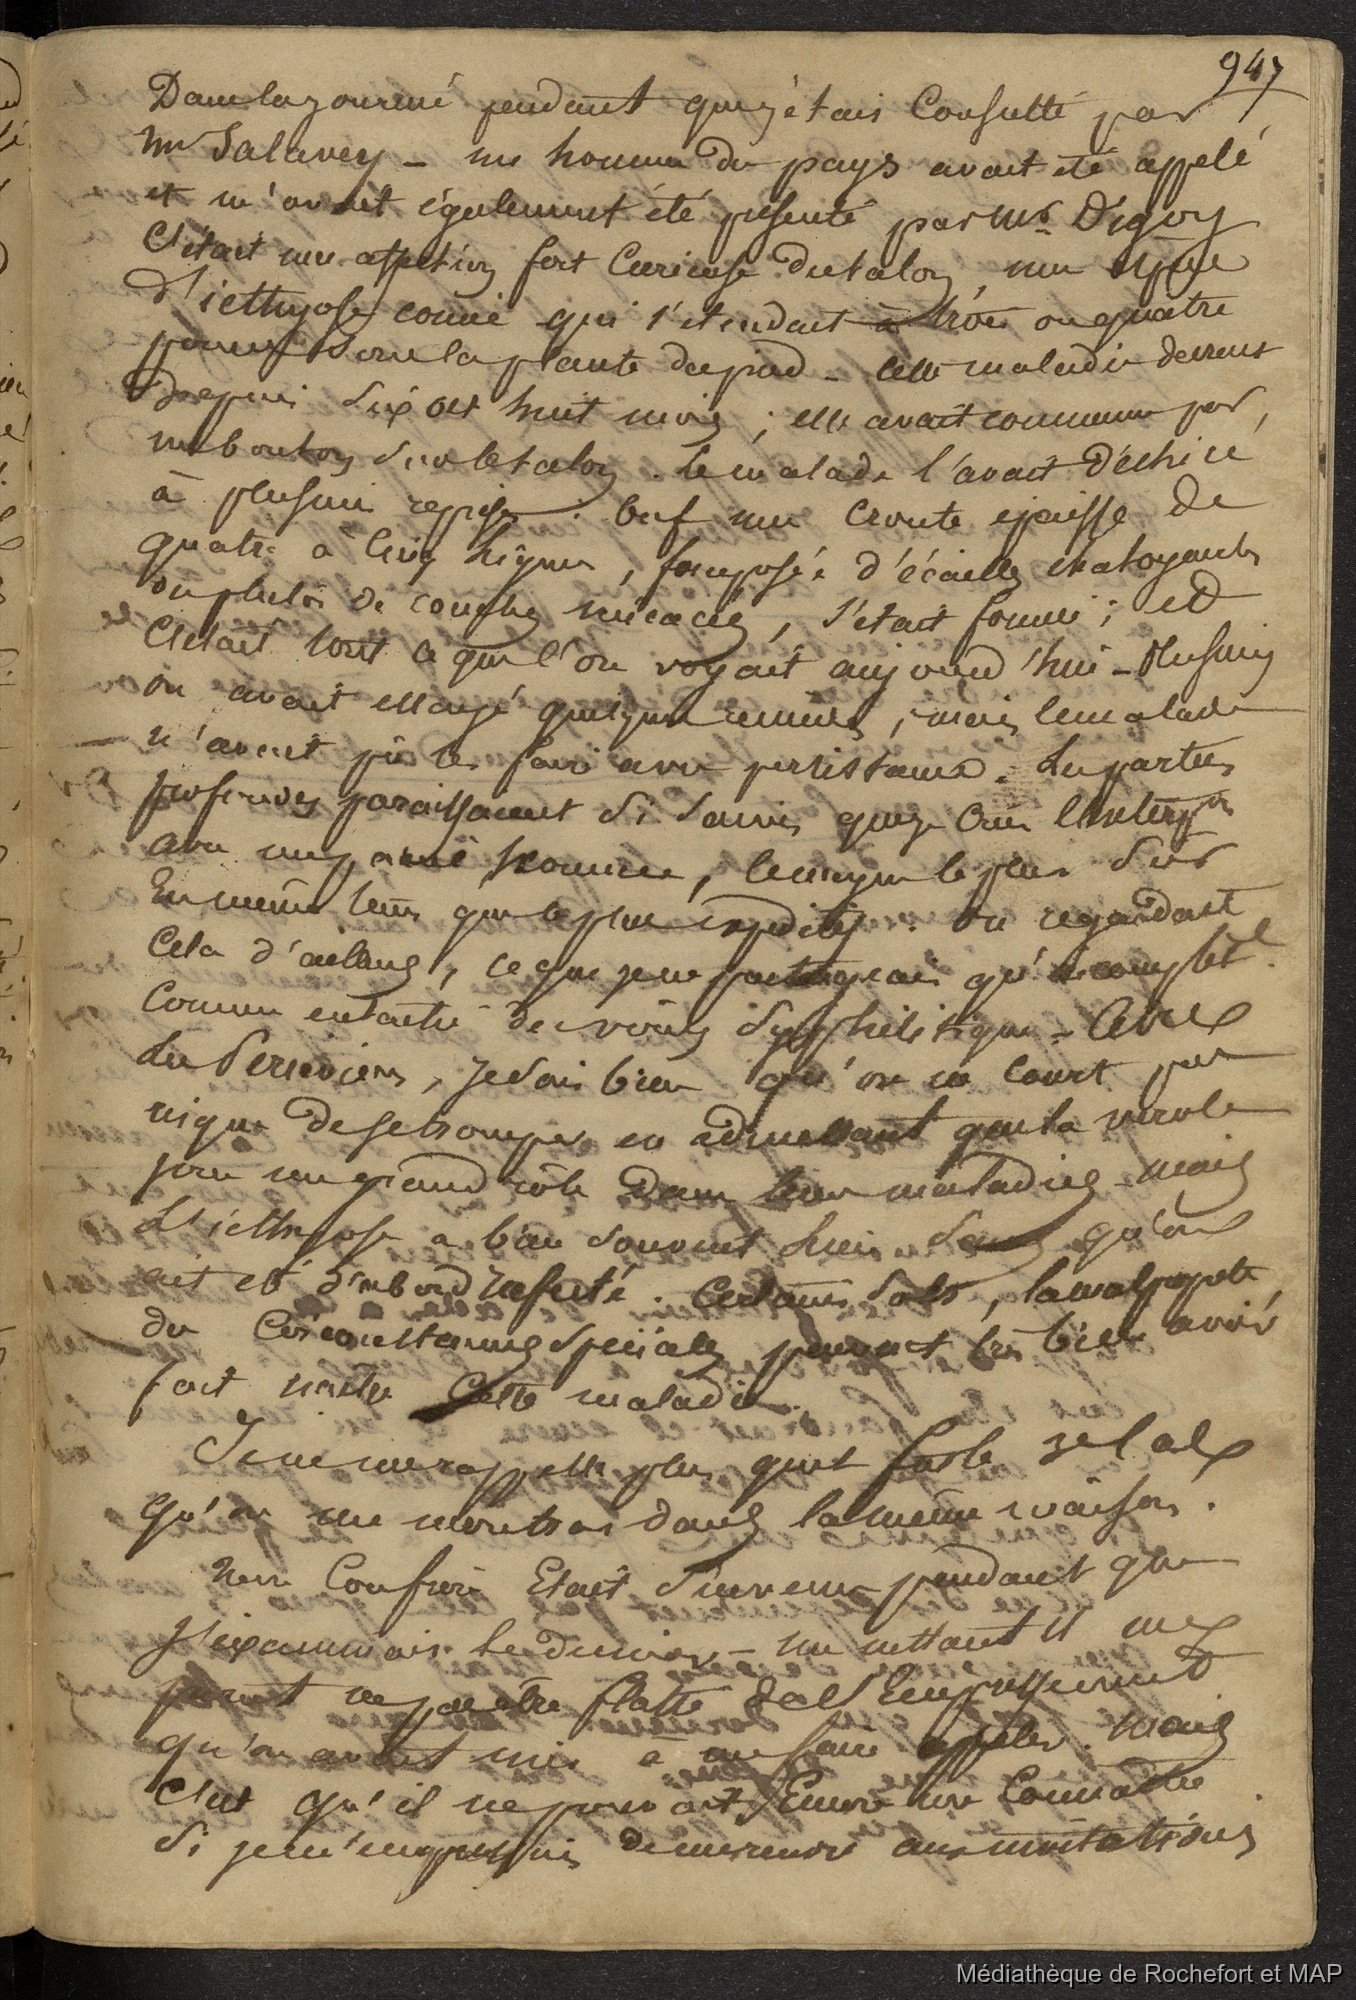 947
Dans la journée pendant que j'étais Consulté par
Mr Salaver – un homme du pays avait été appelé
et m'avait également été présenté par Mr. Digoy
C'était une affection fort Curieuse du talon, une espèce
d'icthyose cornée qui s'étendait à trois ou quatre
pouces sous la plante du pied – cette maladie
Depuis Six ou huit mois ; elle avait commencé par
un bouton sur le talon. le malade l'avait déchiré
à plusieurs reprises. bref une Croute épaisse de
quatre à Cinq lignes, Composée d'écailles chatoyantes
ou plutôt de couches micacées, s'était formée ; et
C'était tout ce que l'on voyait aujourd'hui – Plusieurs
on avait essayé quelques remèdes, mais le malade
n'avait pû les faire avec persistance. Les parties
profondes paraissaient si saines que je Crus
avec une , le moyen le plus Sur
En même tems que le plus expéditif. On regardait
Cela d'ailleurs, ce que je ne partageais qu'incomplet.
Comme entaché de virus Syphilitique – Avec
Les Péruviens, je sais bien qu'on ne Court pas
risque de se tromper en admettant que la vérole
joue un grand rôle dans leurs maladies – mais
L'icthyose a bien souvent lieu sans qu'on
ait été d'abord infecté. Certains Sols, la malpropreté,
des Circonstances Spéciales peuvent très bien avoir
fait naître Cette maladie.
Je ne me rappelle plus quel fut le
qu'on me montra dans la même maison.
Mon Confrère Etait Survenu pendant que
J'examinais le dernier – un instant il me
parut ne pas être flatté de l'Empressement
qu'on avait mis à me faire appeler. mais
C'est qu'il ne pouvait Encore me Connaître
Si je m'empressais de me rendre aux invitations
Médiathèque de Rochefort et MAP